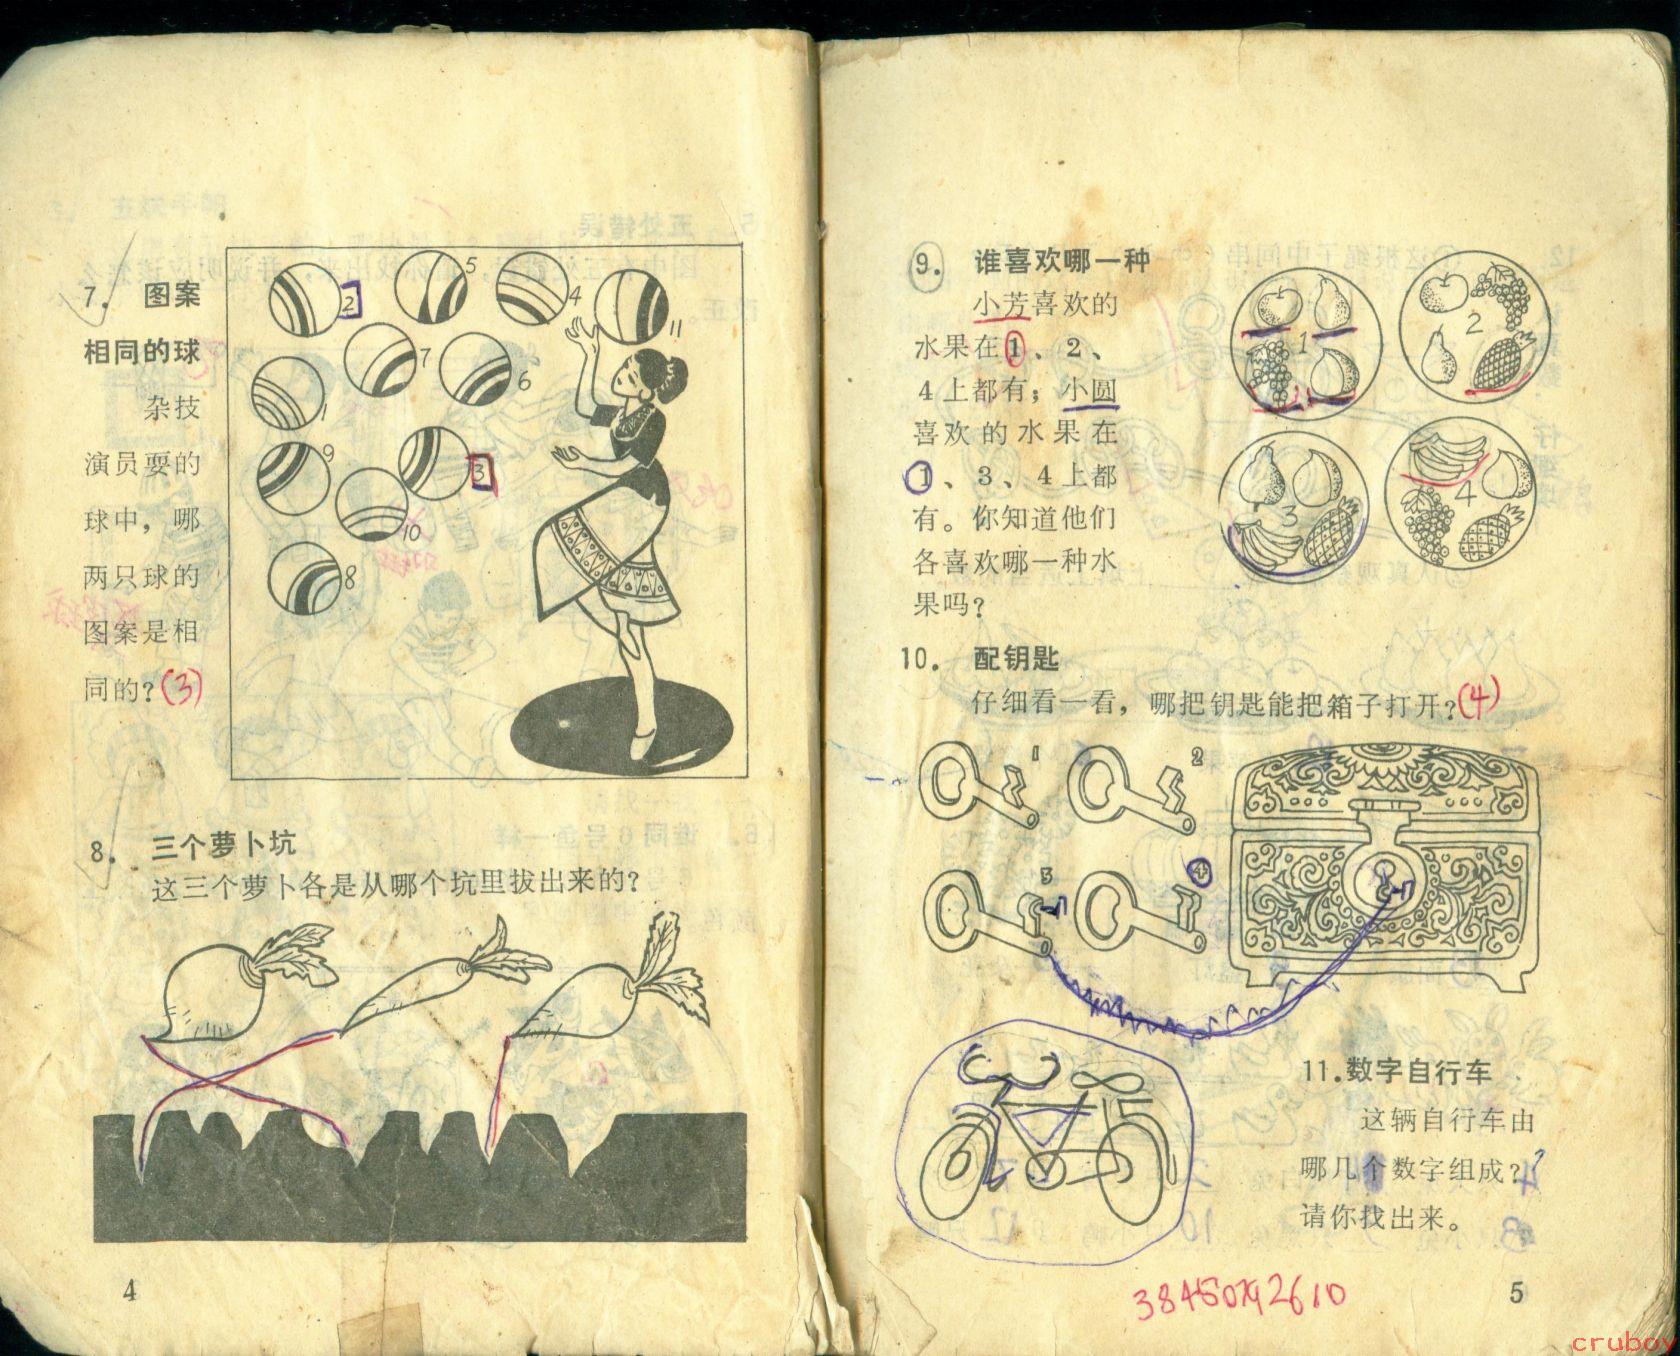 7. 图案
相同的球
杂技
演员耍的
球中，哪
两只球的
图案是相
同的？(3)
2
5
4
11
7
6
1
9
3
10
8
8. 三个萝卜坑
这三个萝卜各是从哪个坑里拔出来的？
4
9. 谁喜欢哪一种
小芳喜欢的
水果在1、2、
4上都有；小圆
喜欢的水果在
1、3、4上都
有。你知道他们
各喜欢哪一种水
果吗？
1
2
3
4
10. 配钥匙
仔细看一看，哪把钥匙能把箱子打开？(4)
1
2
3
4
11.数字自行车
这辆自行车由
哪几个数字组成？
请你找出来。
5
cruboy